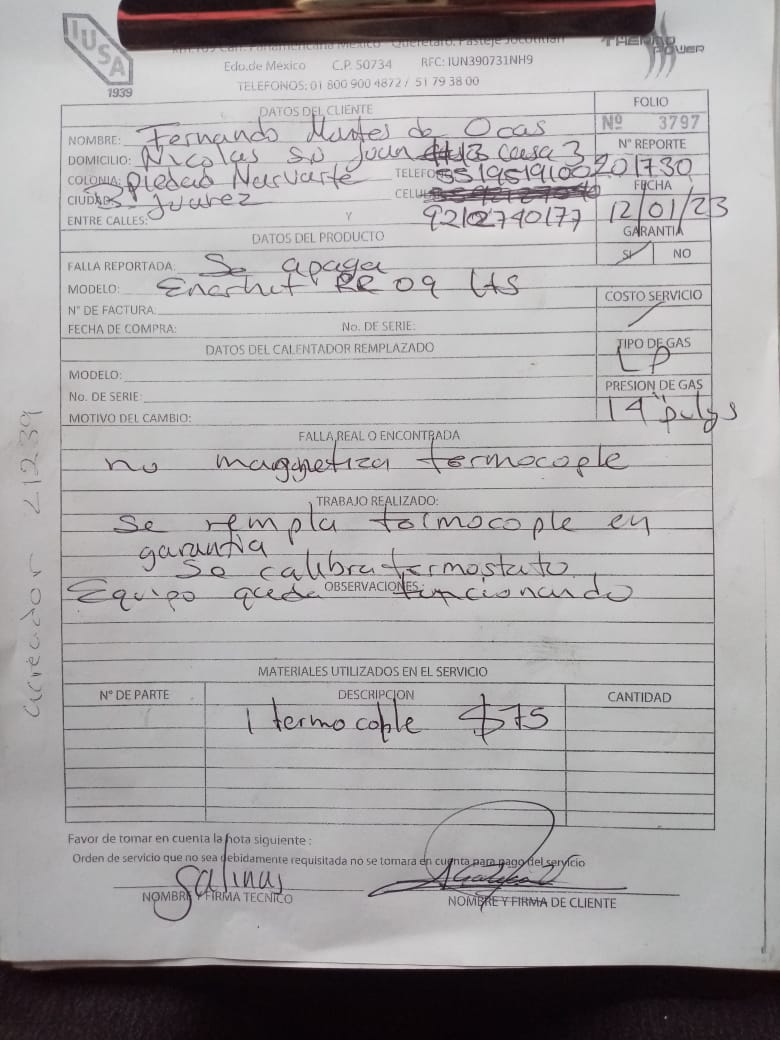 IUSA
1939
Km. 109 Carr. Panamericana México - Querétaro. Pastejé Jocotitlán
THERMO POWER
Edo.de Mexico C.P. 50734 RFC: IUN390731NH9
TELEFONOS: 01 800 900 4872 / 51 79 38 00
DATOS DEL CLIENTE
FOLIO
Nº 3797
NOMBRE: Fernando Montes de Ocas
DOMICILIO: Nicolas Sn Juan 13 casa 3
Nº REPORTE
201730
COLONIA: Piedad Narvarte TELEFO 5519519100
CIUDAD: B. Juarez CELU
FECHA
12/01/23
ENTRE CALLES: Y 9212740177
DATOS DEL PRODUCTO
GARANTIA
SI NO
FALLA REPORTADA: Se apaga
MODELO: RR 09 Lts
Nº DE FACTURA:
COSTO SERVICIO
FECHA DE COMPRA: No. DE SERIE:
DATOS DEL CALENTADOR REMPLAZADO
TIPO DE GAS
LP
MODELO:
No. DE SERIE:
PRESION DE GAS
14" pulgs
MOTIVO DEL CAMBIO:
FALLA REAL O ENCONTRADA
no magnetiza termocople
TRABAJO REALIZADO:
Se rempla termocople en
garantia
Se calibra termostato
Equipo queda funcionando
OBSERVACIONES:
acreador 21239
MATERIALES UTILIZADOS EN EL SERVICIO
Nº DE PARTE DESCRIPCION CANTIDAD
1 termo cople $75
Favor de tomar en cuenta la nota siguiente :
Orden de servicio que no sea debidamente requisitada no se tomara en cuenta para pago del servicio
Salinas
NOMBRE Y FIRMA TECNICO NOMBRE Y FIRMA DE CLIENTE